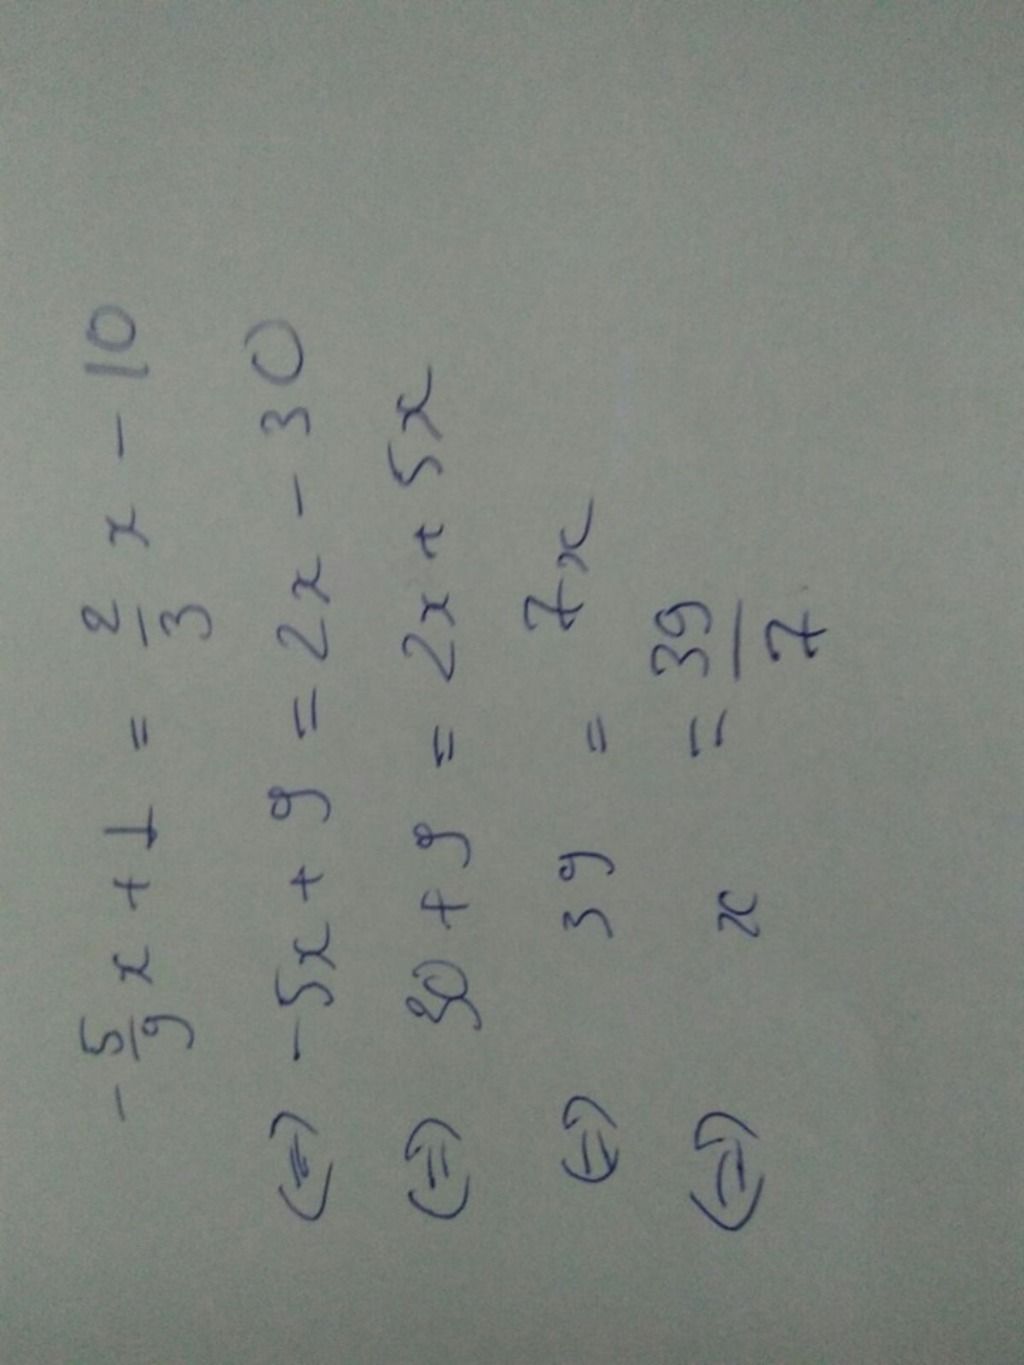 -5/9 x + 1 = 2/3 x - 10
⇔ -5x + 9 = 2x - 30
⇔ 30 + 9 = 2x + 5x
⇔ 39 = 7x
⇔ x = 39/7